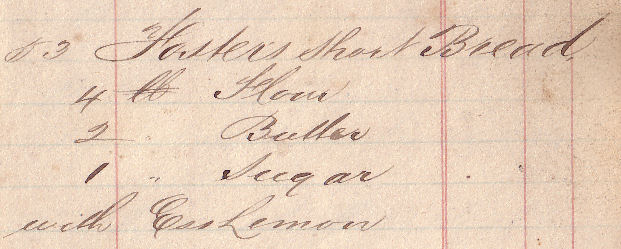 53 Fosters Short Bread.
4 lb Flour
2 " Butter
1 " Sugar
with Ess Lemon